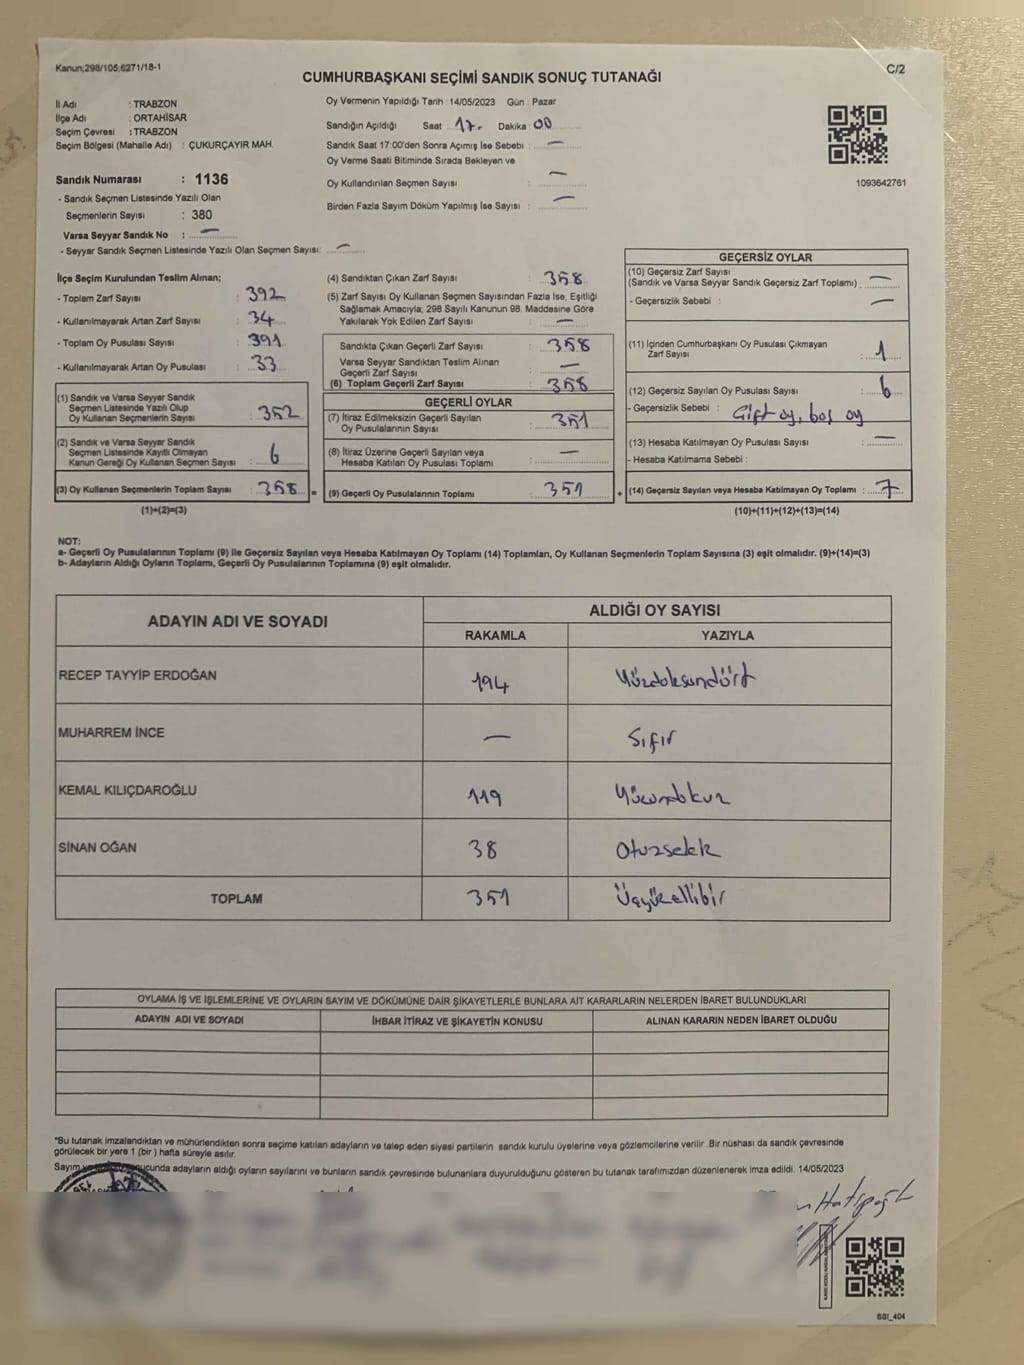 Kanun;298/105,6271/18-1
C/2
CUMHURBAŞKANI SEÇİMİ SANDIK SONUÇ TUTANAĞI
İl Adı : TRABZON
İlçe Adı : ORTAHİSAR
Seçim Çevresi : TRABZON
Seçim Bölgesi (Mahalle Adı) : ÇUKURÇAYIR MAH.
Sandık Numarası : 1136
- Sandık Seçmen Listesinde Yazılı Olan
Seçmenlerin Sayısı : 380
Varsa Seyyar Sandık No : —
- Seyyar Sandık Seçmen Listesinde Yazılı Olan Seçmen Sayısı: —
Oy Vermenin Yapıldığı Tarih : 14/05/2023 Gün : Pazar
Sandığın Açıldığı Saat : 17. Dakika : 00
Sandık Saat 17:00'den Sonra Açılmış İse Sebebi : —
Oy Verme Saati Bitiminde Sırada Bekleyen ve
Oy Kullandırılan Seçmen Sayısı : —
Birden Fazla Sayım Döküm Yapılmış İse Sayısı : —
1093642761
İlçe Seçim Kurulundan Teslim Alınan;
- Toplam Zarf Sayısı : 392
- Kullanılmayarak Artan Zarf Sayısı : 34
- Toplam Oy Pusulası Sayısı : 391
- Kullanılmayarak Artan Oy Pusulası : 33
(1) Sandık ve Varsa Seyyar Sandık
Seçmen Listesinde Yazılı Olup
Oy Kullanan Seçmenlerin Sayısı : 352
(2) Sandık ve Varsa Seyyar Sandık
Seçmen Listesinde Kayıtlı Olmayan
Kanun Gereği Oy Kullanan Seçmen Sayısı : 6
(3) Oy Kullanan Seçmenlerin Toplam Sayısı : 358 =
(1)+(2)=(3)
(4) Sandıktan Çıkan Zarf Sayısı : 358
(5) Zarf Sayısı Oy Kullanan Seçmen Sayısından Fazla İse, Eşitliği
Sağlamak Amacıyla; 298 Sayılı Kanunun 98. Maddesine Göre
Yakılarak Yok Edilen Zarf Sayısı : —
Sandıkta Çıkan Geçerli Zarf Sayısı : 358
Varsa Seyyar Sandıktan Teslim Alınan
Geçerli Zarf Sayısı : —
(6) Toplam Geçerli Zarf Sayısı : 358
GEÇERLİ OYLAR
(7) İtiraz Edilmeksizin Geçerli Sayılan
Oy Pusulalarının Sayısı : 351
(8) İtiraz Üzerine Geçerli Sayılan veya
Hesaba Katılan Oy Pusulası Toplamı : —
(9) Geçerli Oy Pusulalarının Toplamı : 351 +
GEÇERSİZ OYLAR
(10) Geçersiz Zarf Sayısı
(Sandık ve Varsa Seyyar Sandık Geçersiz Zarf Toplamı) : —
- Geçersizlik Sebebi : —
(11) İçinden Cumhurbaşkanı Oy Pusulası Çıkmayan
Zarf Sayısı : 1
(12) Geçersiz Sayılan Oy Pusulası Sayısı : 6
- Geçersizlik Sebebi : Çift oy, boş oy
(13) Hesaba Katılmayan Oy Pusulası Sayısı : —
- Hesaba Katılmama Sebebi :
(14) Geçersiz Sayılan veya Hesaba Katılmayan Oy Toplamı : 7
(10)+(11)+(12)+(13)=(14)
NOT:
a- Geçerli Oy Pusulalarının Toplamı (9) ile Geçersiz Sayılan veya Hesaba Katılmayan Oy Toplamı (14) Toplamları, Oy Kullanan Seçmenlerin Toplam Sayısına (3) eşit olmalıdır. (9)+(14)=(3)
b- Adayların Aldığı Oyların Toplamı, Geçerli Oy Pusulalarının Toplamına (9) eşit olmalıdır.
ADAYIN ADI VE SOYADI ALDIĞI OY SAYISI
RAKAMLA YAZIYLA
RECEP TAYYİP ERDOĞAN 194 Yüzdoksandört
MUHARREM İNCE — Sıfır
KEMAL KILIÇDAROĞLU 119 Yüzondokuz
SİNAN OĞAN 38 Otuzsekiz
TOPLAM 351 Üçyüzellibir
OYLAMA İŞ VE İŞLEMLERİNE VE OYLARIN SAYIM VE DÖKÜMÜNE DAİR ŞİKAYETLERLE BUNLARA AİT KARARLARIN NELERDEN İBARET BULUNDUKLARI
ADAYIN ADI VE SOYADI İHBAR İTİRAZ VE ŞİKAYETİN KONUSU ALINAN KARARIN NEDEN İBARET OLDUĞU
*Bu tutanak imzalandıktan ve mühürlendikten sonra seçime katılan adayların ve talep eden siyasi partilerin sandık kurulu üyelerine veya gözlemcilerine verilir .Bir nüshası da sandık çevresinde
görülecek bir yere 1 (bir ) hafta süreyle asılır.
Sayım ucunda adayların aldığı oyların sayılarını ve bunların sandık çevresinde bulunanlara duyurulduğunu gösteren bu tutanak tarafımızdan düzenlenerek imza edildi. 14/05/2023
SSI_404